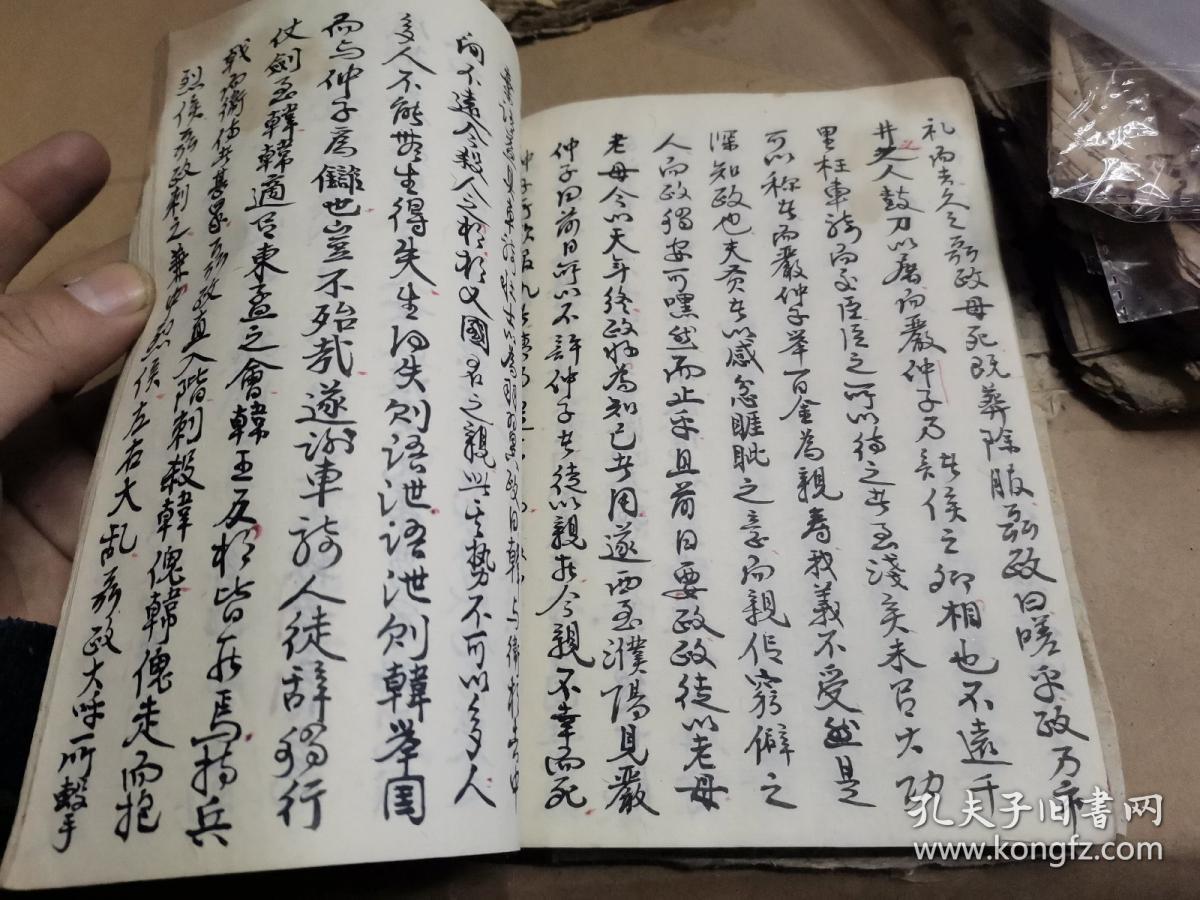 礼而去久之聂政母死既葬除服聂政曰嗟乎政乃市
井人鼓刀以屠而嚴仲子乃诸侯之卿相也不遠千
里枉車騎而交臣臣之所以待之者至淺矣未有大功
可以称者而嚴仲子举百金為親寿我義不受然是
深知政也夫贡者以感忿睚眦之意而親信窮僻之
人而政獨安可嘿然而止乎且前日要政政徒以老母
老母今以天年终政将為知己者用遂西至濮陽見嚴
仲子曰前日所以不許仲子者徒以親在今親不幸而死
間不遠今殺人之相相又國君之親此其势不可以多人
多人不能無生得失生得失则语泄语泄则韓举国
而与仲子為讎也豈不殆哉遂謝車騎人徒辞獨行
仗劍至韓韓適有東孟之會韓王及相皆在焉持兵
戟而衛侍者甚眾聂政直入階刺殺韓傀韓傀走而抱
烈侯聂政刺之兼中烈侯左右大乱聂政大呼所殺
孔夫子旧书网
www.kongfz.com